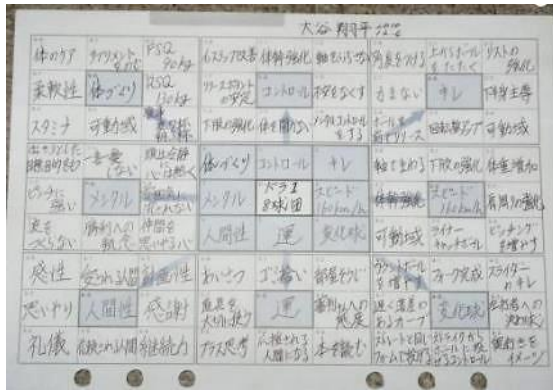 大谷翔平
体のケア サプリメントをのむ FSQ 90kg インステップ改善 体幹強化 軸をぶらさない 角度をつける 上からボールをたたく リストの強化
柔軟性 体づくり RSQ 130kg リリースポイントの安定 コントロール 不安をなくす 力まない キレ 下半身主導
スタミナ 可動域 下肢の強化 体を開かない メンタルコントロールをする ボールを前でリリース 回転数アップ 可動域
はっきりとした目標、目的をもつ 一喜一憂しない 頭は冷静に心は熱く 体づくり コントロール キレ 軸でまわる 下肢の強化 体重増加
ピンチに強い メンタル 雰囲気に流されない メンタル ドラ1 8球団 スピード 160km/h 体幹強化 スピード 160km/h 肩周りの強化
波をつくらない 勝利への執念 仲間を思いやる心 人間性 運 変化球 可動域 ライナーキャッチボール ピッチングを増やす
感性 愛される人間 計画性 あいさつ ゴミ拾い 部屋そうじ カウントボールを増やす フォーク完成 スライダーのキレ
思いやり 人間性 感謝 道具を大切に使う 運 審判さんへの態度 遅く落差のあるカーブ 変化球 左打者への決め球
礼儀 信頼される人間 継続力 プラス思考 応援される人間になる 本を読む ストレートと同じフォームで投げる ストライクからボールに投げるコントロール 奥行きをイメージ